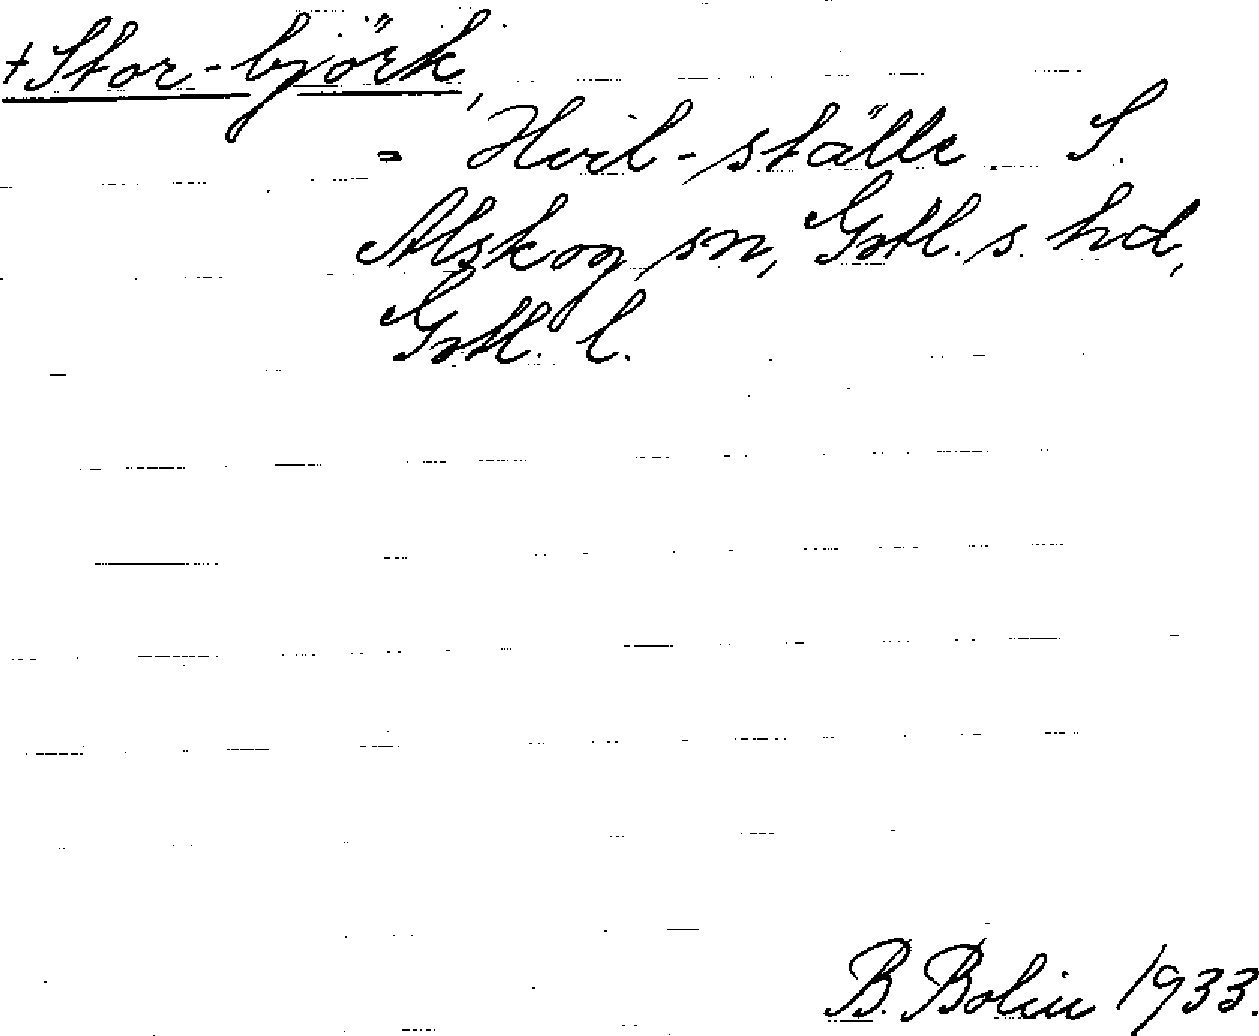 +Stor-björk,
= Hvil-ställe S.
Alskog sn, Gotl. s. hd,
Gotl. l.
B. Bolin 1933.